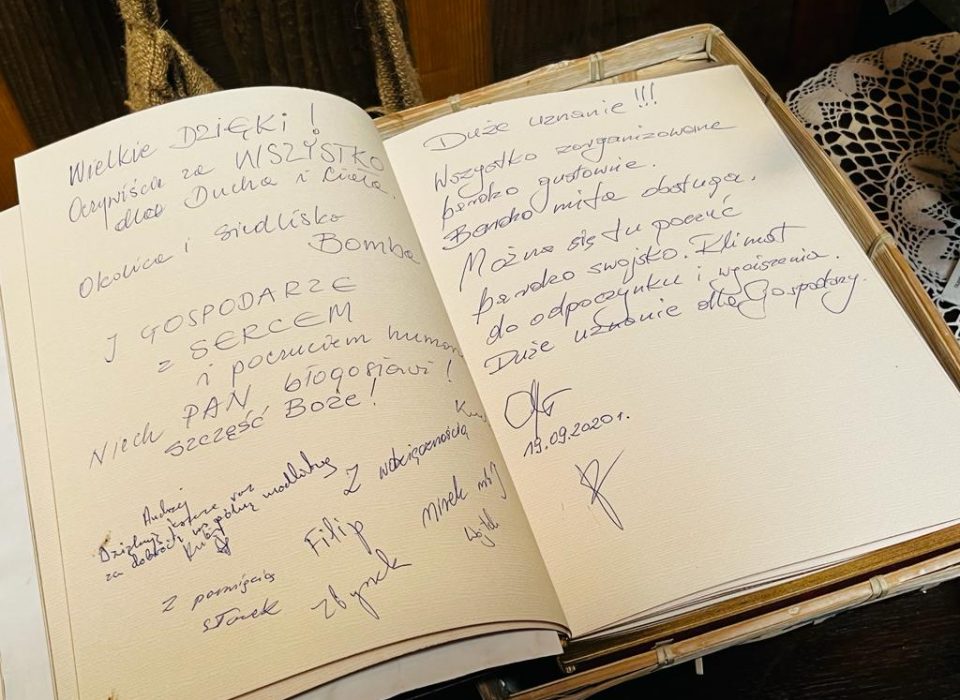 Wielkie DZIĘKI!
Oczywiście za WSZYSTKO
dla Ducha i Ciała.
Okolica i siedlisko
Bomba
I GOSPODARZE
z SERCEM
i poczuciem humoru
NIECH PAN błogosławi!
SZCZĘŚĆ BOŻE!
Andrzej
Z wdzięcznością
za dobroć wspólną modlitwę
Filip
Mirek
Z pamięcią
Sławek
Zbyszek
Duże uznanie!!!
Wszystko zorganizowane
bardzo gustownie.
Bardzo miła obsługa.
Można się tu poczuć
bardzo swojsko. Klimat
do odpoczynku i wyciszenia.
Duże uznanie dla Gospodarzy.
19.09.2020r.